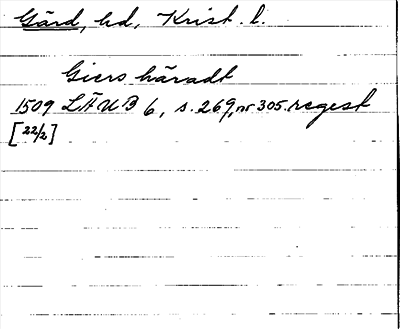 Gärd, hd, Krist. l.
Giers häradt
1509 LÄUB 6, s. 269, nr 305. regest
[22/2]